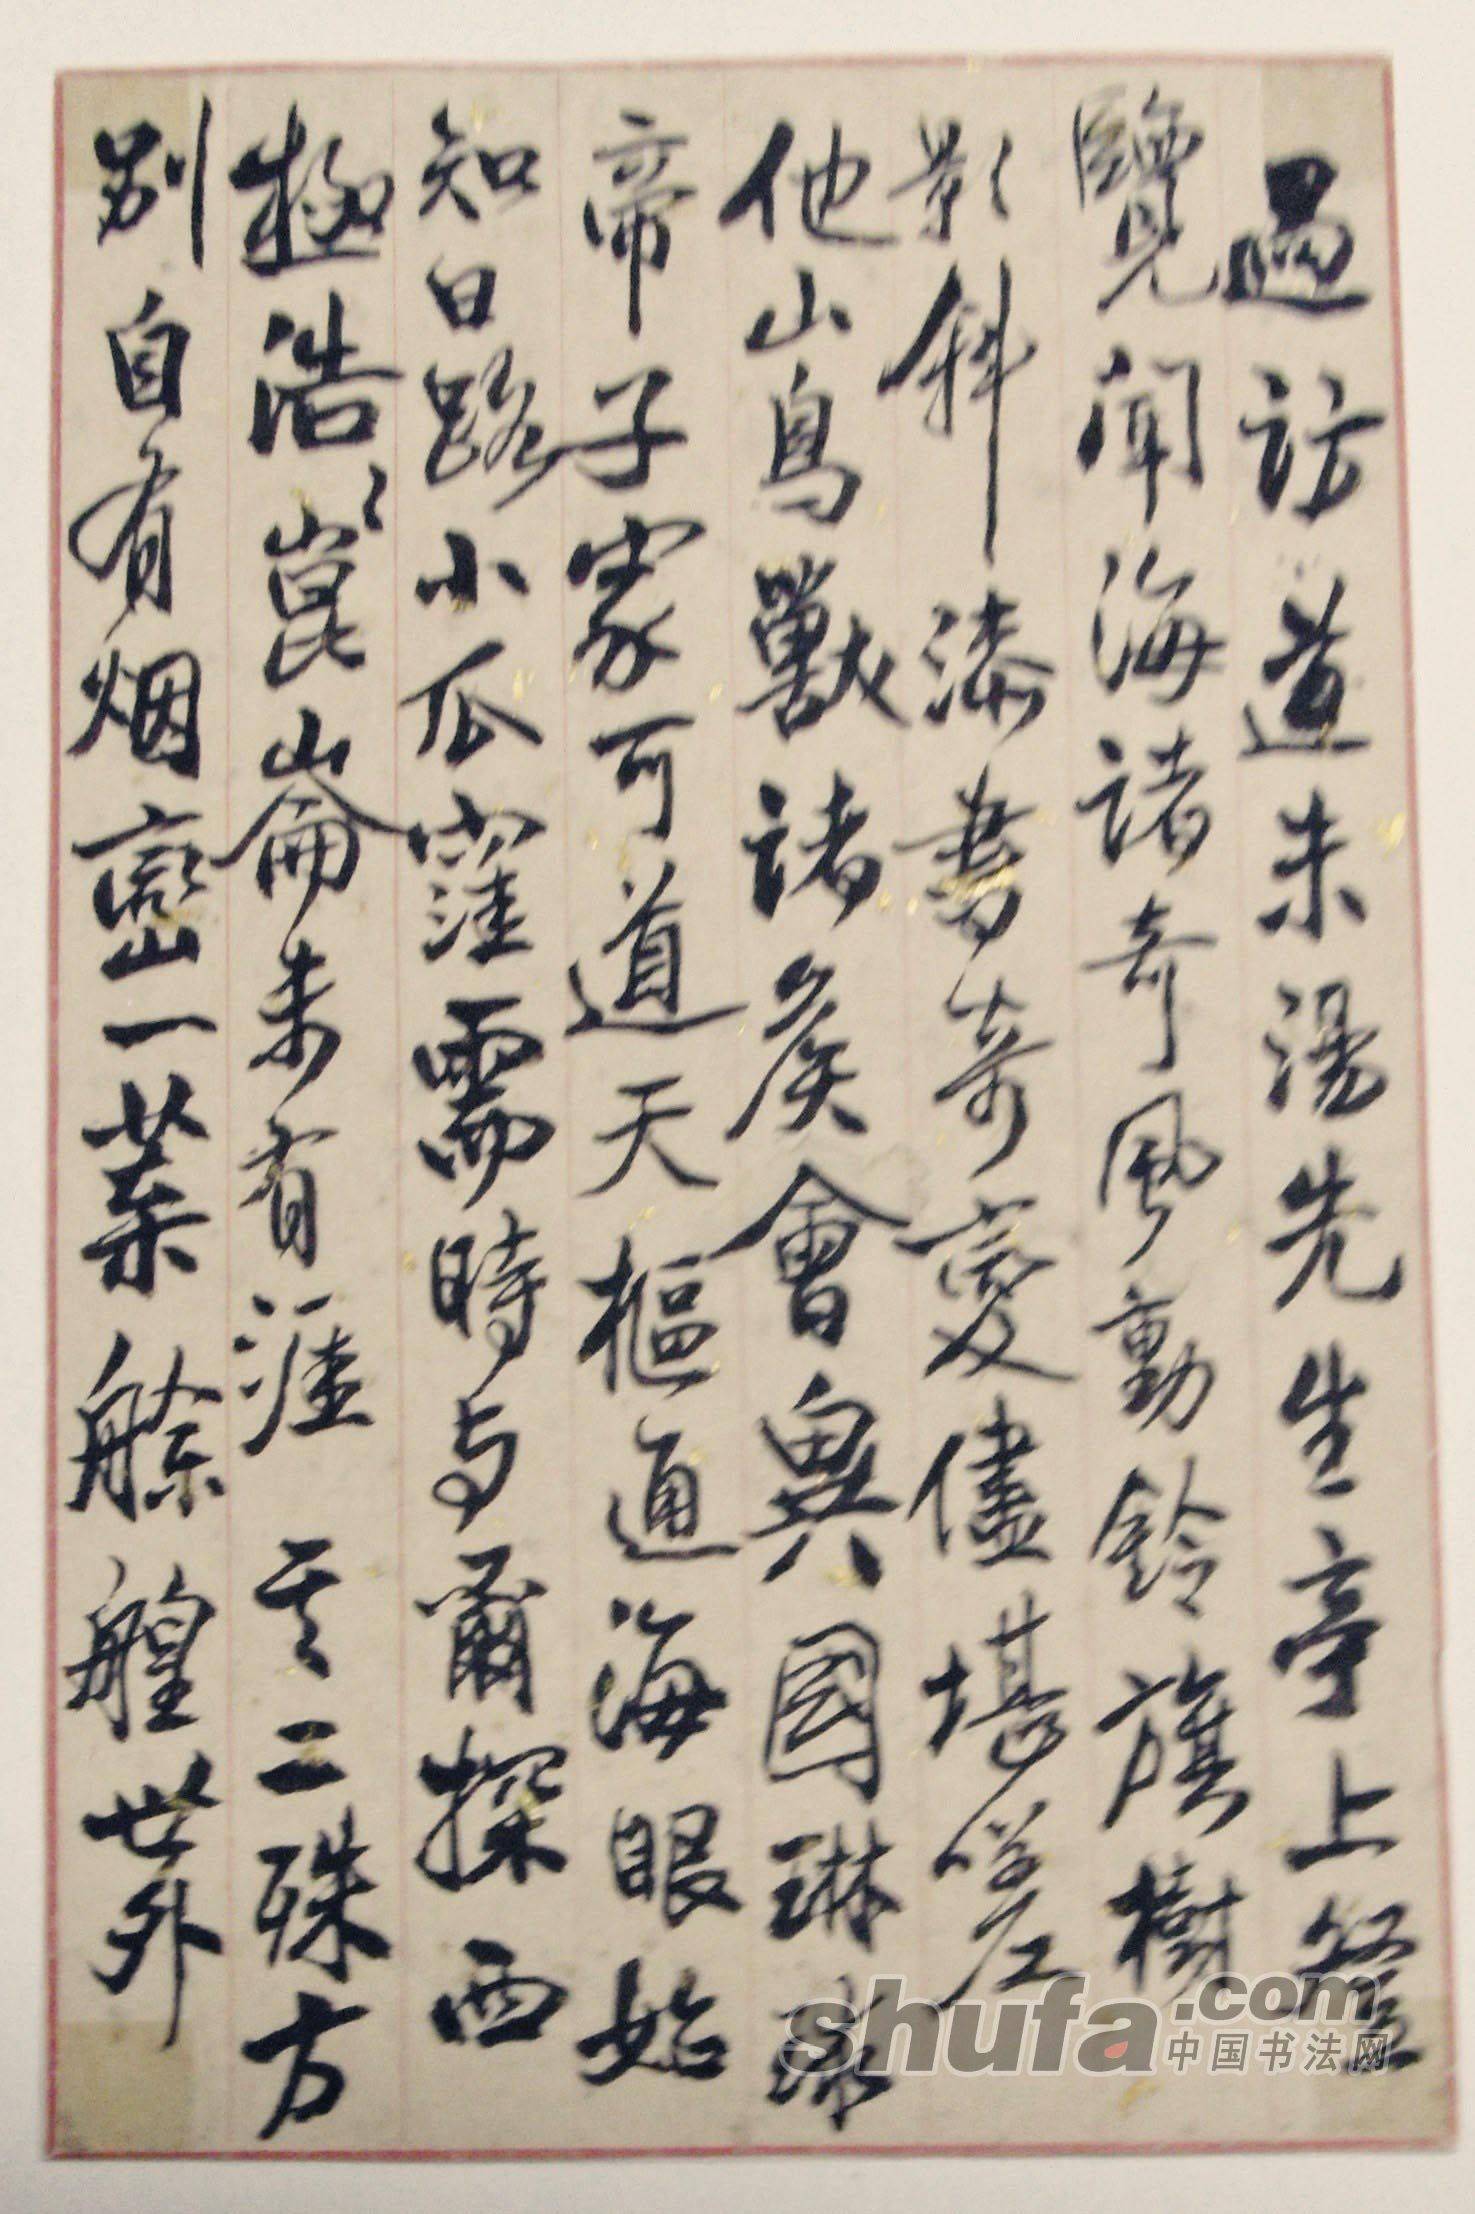 過訪道未湯先生亭上登
覽聞海諸奇風動鈴旗樹
影斜漆書奇變儘堪嗟
他山鳥獸諸侯會異國琳球
帝子家可道天樞通海眼始
知日路小瓜窪需時与爾探西
極浩〻崑崙未有涯 其二殊方
別自有烟巒一葉艅艎世外
shufa.com
中国书法网